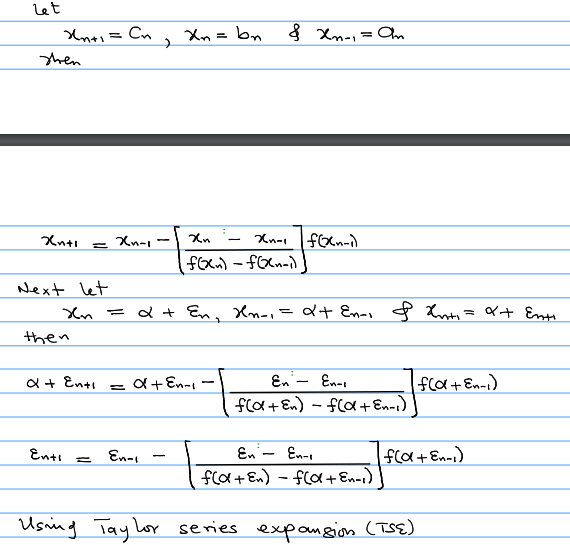 Let
xₙ₊₁ = Cₙ , xₙ = bₙ & xₙ₋₁ = aₙ
then
xₙ₊₁ = xₙ₋₁ − [ (xₙ − xₙ₋₁) / (f(xₙ) − f(xₙ₋₁)) ] f(xₙ₋₁)
Next let
xₙ = α + εₙ, xₙ₋₁ = α + εₙ₋₁ & xₙ₊₁ = α + εₙ₊₁
then
α + εₙ₊₁ = α + εₙ₋₁ − [ (εₙ − εₙ₋₁) / (f(α + εₙ) − f(α + εₙ₋₁)) ] f(α + εₙ₋₁)
εₙ₊₁ = εₙ₋₁ − [ (εₙ − εₙ₋₁) / (f(α + εₙ) − f(α + εₙ₋₁)) ] f(α + εₙ₋₁)
Using Taylor series expansion (TSE)